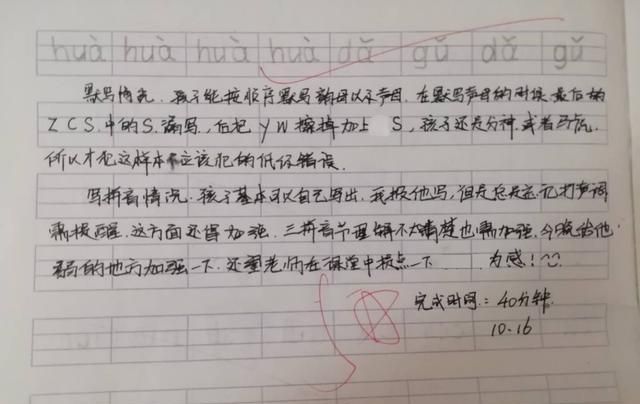 huà huà huà huà dǎ gǔ dǎ gǔ
默写情况,孩子能按顺序默写韵母以及声母,在默写声母的时候最后的
Z C S 中的S漏写,后把 y w 擦掉加上 S,孩子还是分神,或者马虎,
所以才犯这样本不应该犯的低级错误。
写拼音情况,孩子基本可以自己写出,我报他写,但是总是忘记打声调
需提醒,这方面还得加强,三拼音节理解不太清楚也需加强,今晚给他
弱的地方加强一下,还望老师在课堂中提点一下 为感!
完成时间:40分钟.
10.16